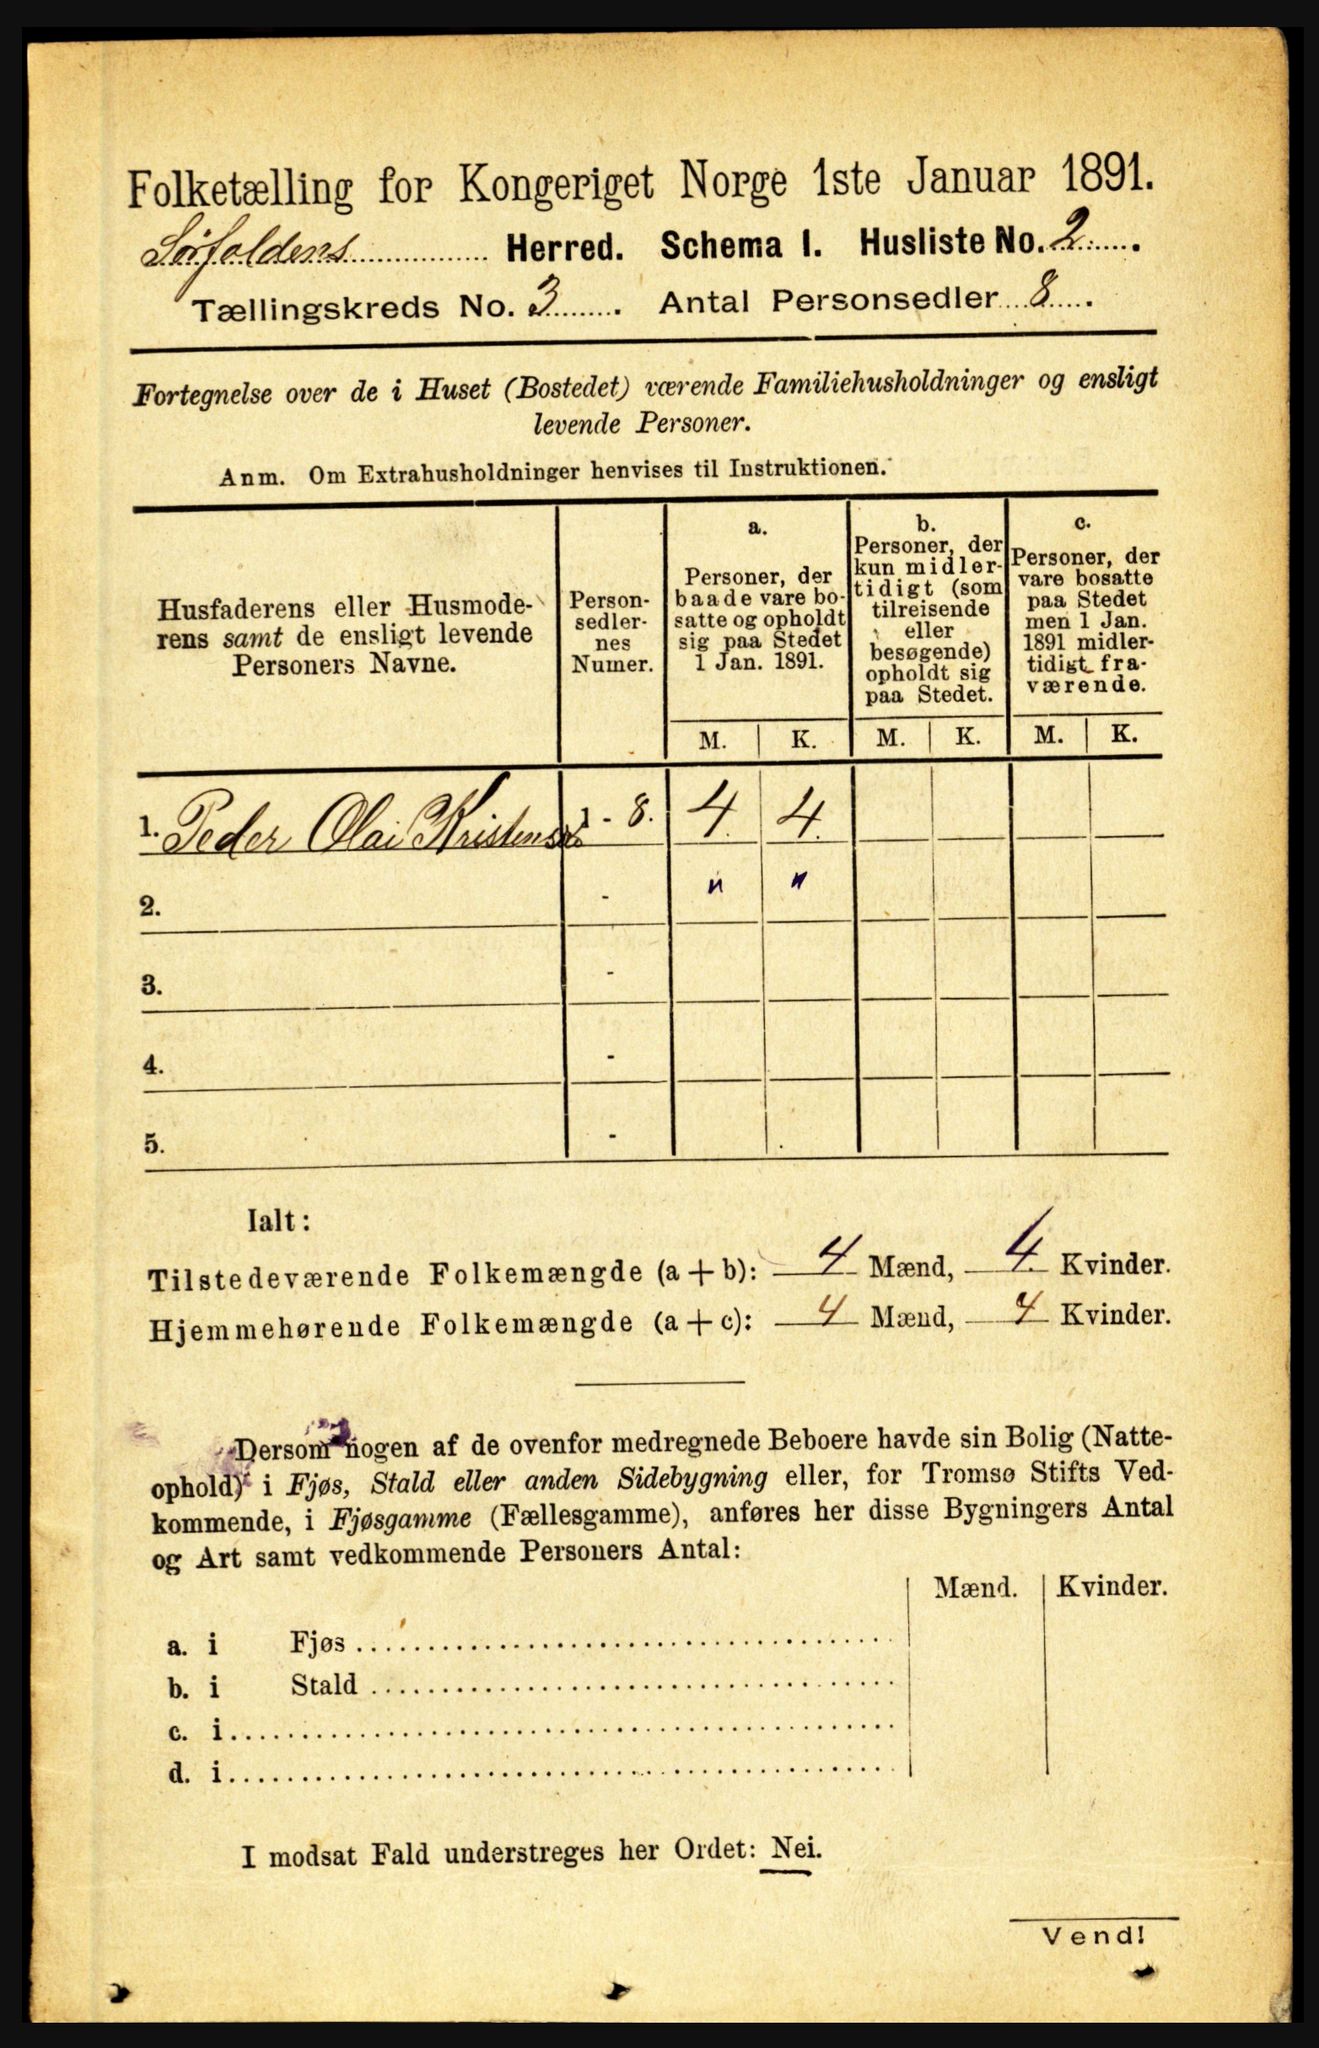 Folketælling for Kongeriget Norge 1ste Januar 1891.
Sørfoldens Herred. Schema I. Husliste No. 2.
Tællingskreds No. 3. Antal Personsedler 8.
Fortegnelse over de i Huset (Bostedet) værende Familiehusholdninger og ensligt
levende Personer.
Anm. Om Extrahusholdninger henvises til Instruktionen.
Husfaderens eller Husmode-
rens samt de ensligt levende
Personers Navne.
Person-
sedler-
nes
Numer.
a.
Personer, der
baade vare bo-
satte og opholdt
sig paa Stedet
1 Jan. 1891.
b.
Personer, der
kun midler-
tidigt (som
tilreisende
eller
besøgende)
opholdt sig
paa Stedet.
c.
Personer, der
vare bosatte
paa Stedet
men 1 Jan.
1891 midler-
tidigt fra-
værende.
M. K. M. K. M. K.
1. Peder Olai Kristensen 1 - 8. 4. 4.
2. - " "
3. -
4. -
5. -
Ialt:
Tilstedeværende Folkemængde (a + b): 4 Mænd, 4 Kvinder.
Hjemmehørende Folkemængde (a + c): 4 Mænd, 4 Kvinder.
Dersom nogen af de ovenfor medregnede Beboere havde sin Bolig (Natte-
ophold) i Fjøs, Stald eller anden Sidebygning eller, for Tromsø Stifts Ved-
kommende, i Fjøsgamme (Fællesgamme), anføres her disse Bygningers Antal
og Art samt vedkommende Personers Antal:
Mænd. Kvinder.
a. i Fjøs
b. i Stald
c. i
d. i
I modsat Fald understreges her Ordet: Nei.
Vend!